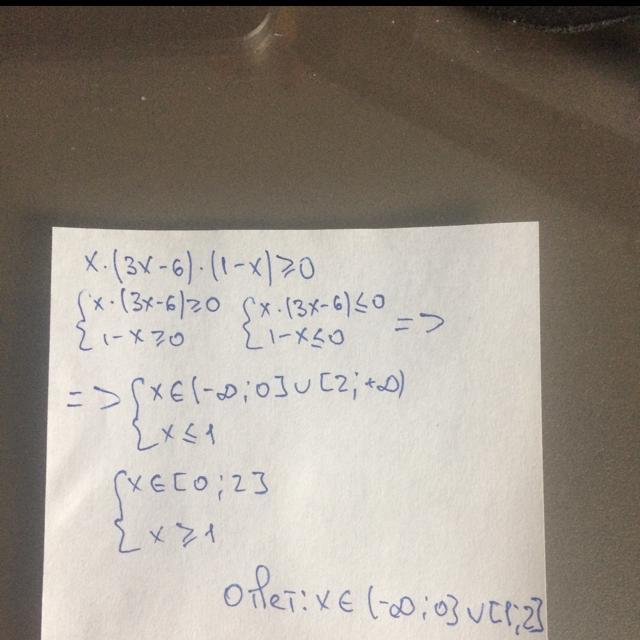 x·(3x-6)·(1-x)≥0
{x·(3x-6)≥0 {x·(3x-6)≤0
{1-x≥0 {1-x≤0 =>
=> {x∈(-∞;0]∪[2;+∞)
{x≤1
{x∈[0;2]
{x≥1
Ответ: x∈(-∞;0]∪[1;2]